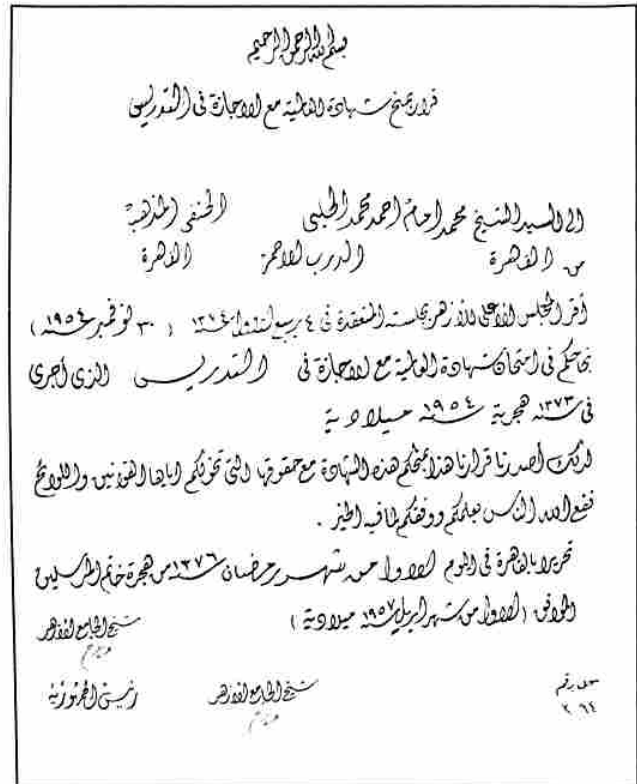 بسم الله الرحمن الرحيم
قرار بمنح شهادة العالمية مع الاجازة في التدريس
الى السيد الشيخ محمد امام احمد محمد الحلبى الحنفى المذهب
من القاهرة الدرب الاحمر القاهرة
أقر المجلس الأعلى للأزهر بجلسته المنعقدة فى ٤ ربيع سنة ١٣٧٤ ( ٣٠ نوفمبر سنة ١٩٥٤ )
نجاحكم فى امتحان شهادة العالمية مع الاجازة فى التدريس الذى أجرى
فى سنة ١٣٧٣ هجرية سنة ١٩٥٤ ميلادية
لذلك أصدرنا قرارنا هذا بمنحكم هذه الشهادة مع حقوقها التى تخولكم اياها القوانين واللوائح
نفع الله الناس بعلمكم ووفقكم لما فيه الخير .
تحريرا بالقاهرة فى اليوم الاول من شهر رمضان سنة ١٣٧٦ من هجرة خاتم المرسلين
الموافق ( الاول من شهر ابريل سنة ١٩٥٧ ميلادية )
شيخ الجامع الازهر
سجل رقم شيخ الجامع الازهر رئيس الجمهورية
٢٠٦٤